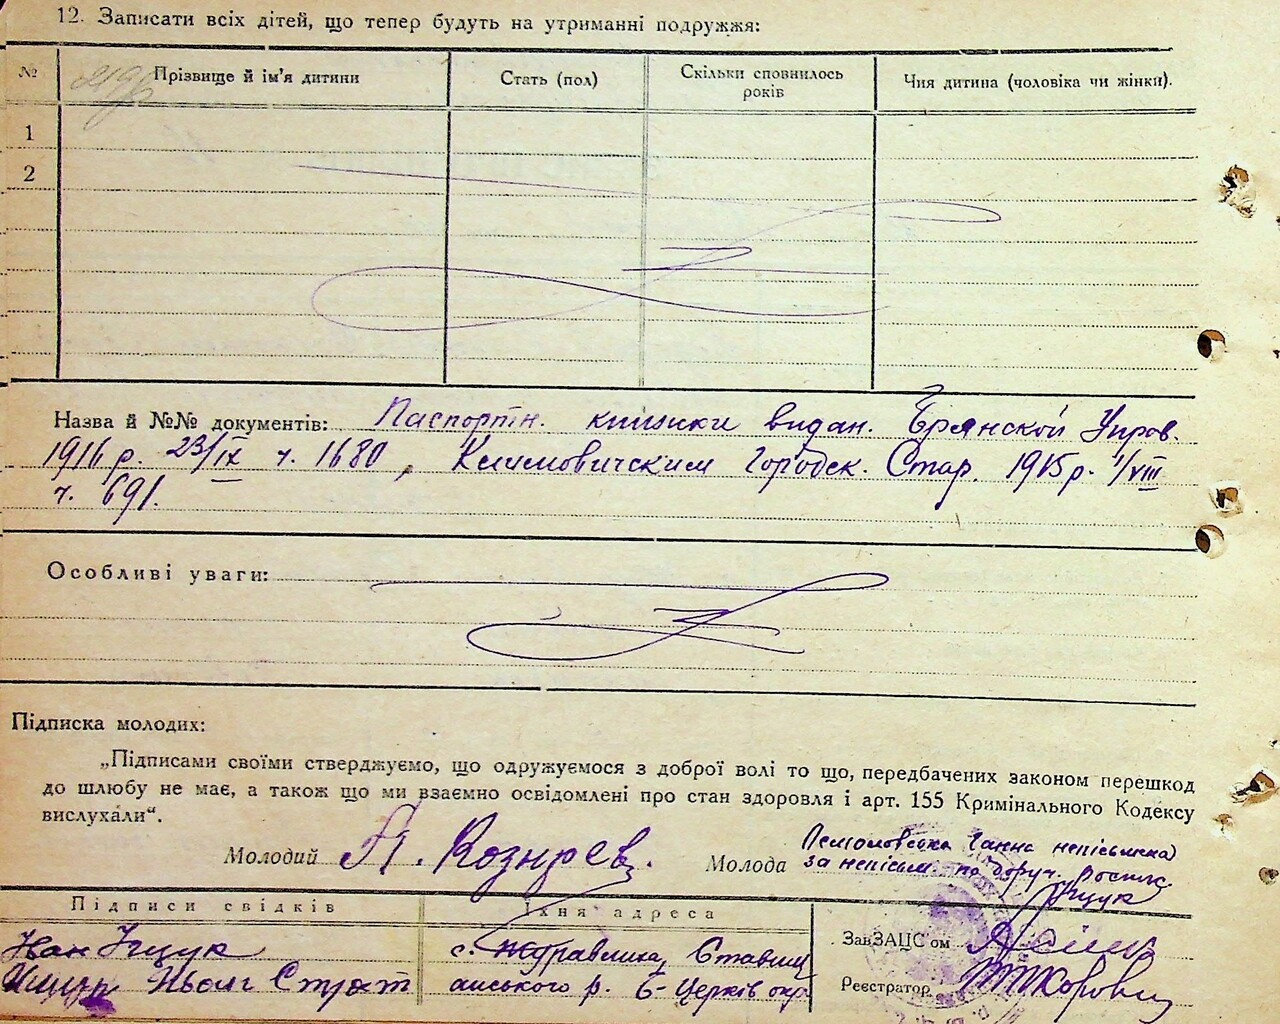 12. Записати всіх дітей, що тепер будуть на утриманні подружжя:
№ Прізвище й ім'я дитини Стать (пол) Скільки сповнилось років Чия дитина (чоловіка чи жінки).
1
2
Назва й №№ документів: Паспортн. книжки видан. Брянской Упров.
1916 р. 23/IX ч. 1680, Климовичским Городск. Стар. 1915 р. 1/VIII
ч. 691.
Особливі уваги:
Підписка молодих:
„Підписами своїми стверджуємо, що одружуємося з доброї волі то що, передбачених законом перешкод
до шлюбу не має, а також що ми взаємно освідомлені про стан здоровля і арт. 155 Кримінального Кодексу
вислухали“.
Молодий А. Козырев. Молода Ганна неписьменна
за неписьм. по доруч. роспис.
Іщук
Підписи свідків Їхня адреса
Іван Іщук с. Журавлиха, Ставищ
анського р. Б-Церків окр
ЗавЗАЦС'ом
Реєстратор